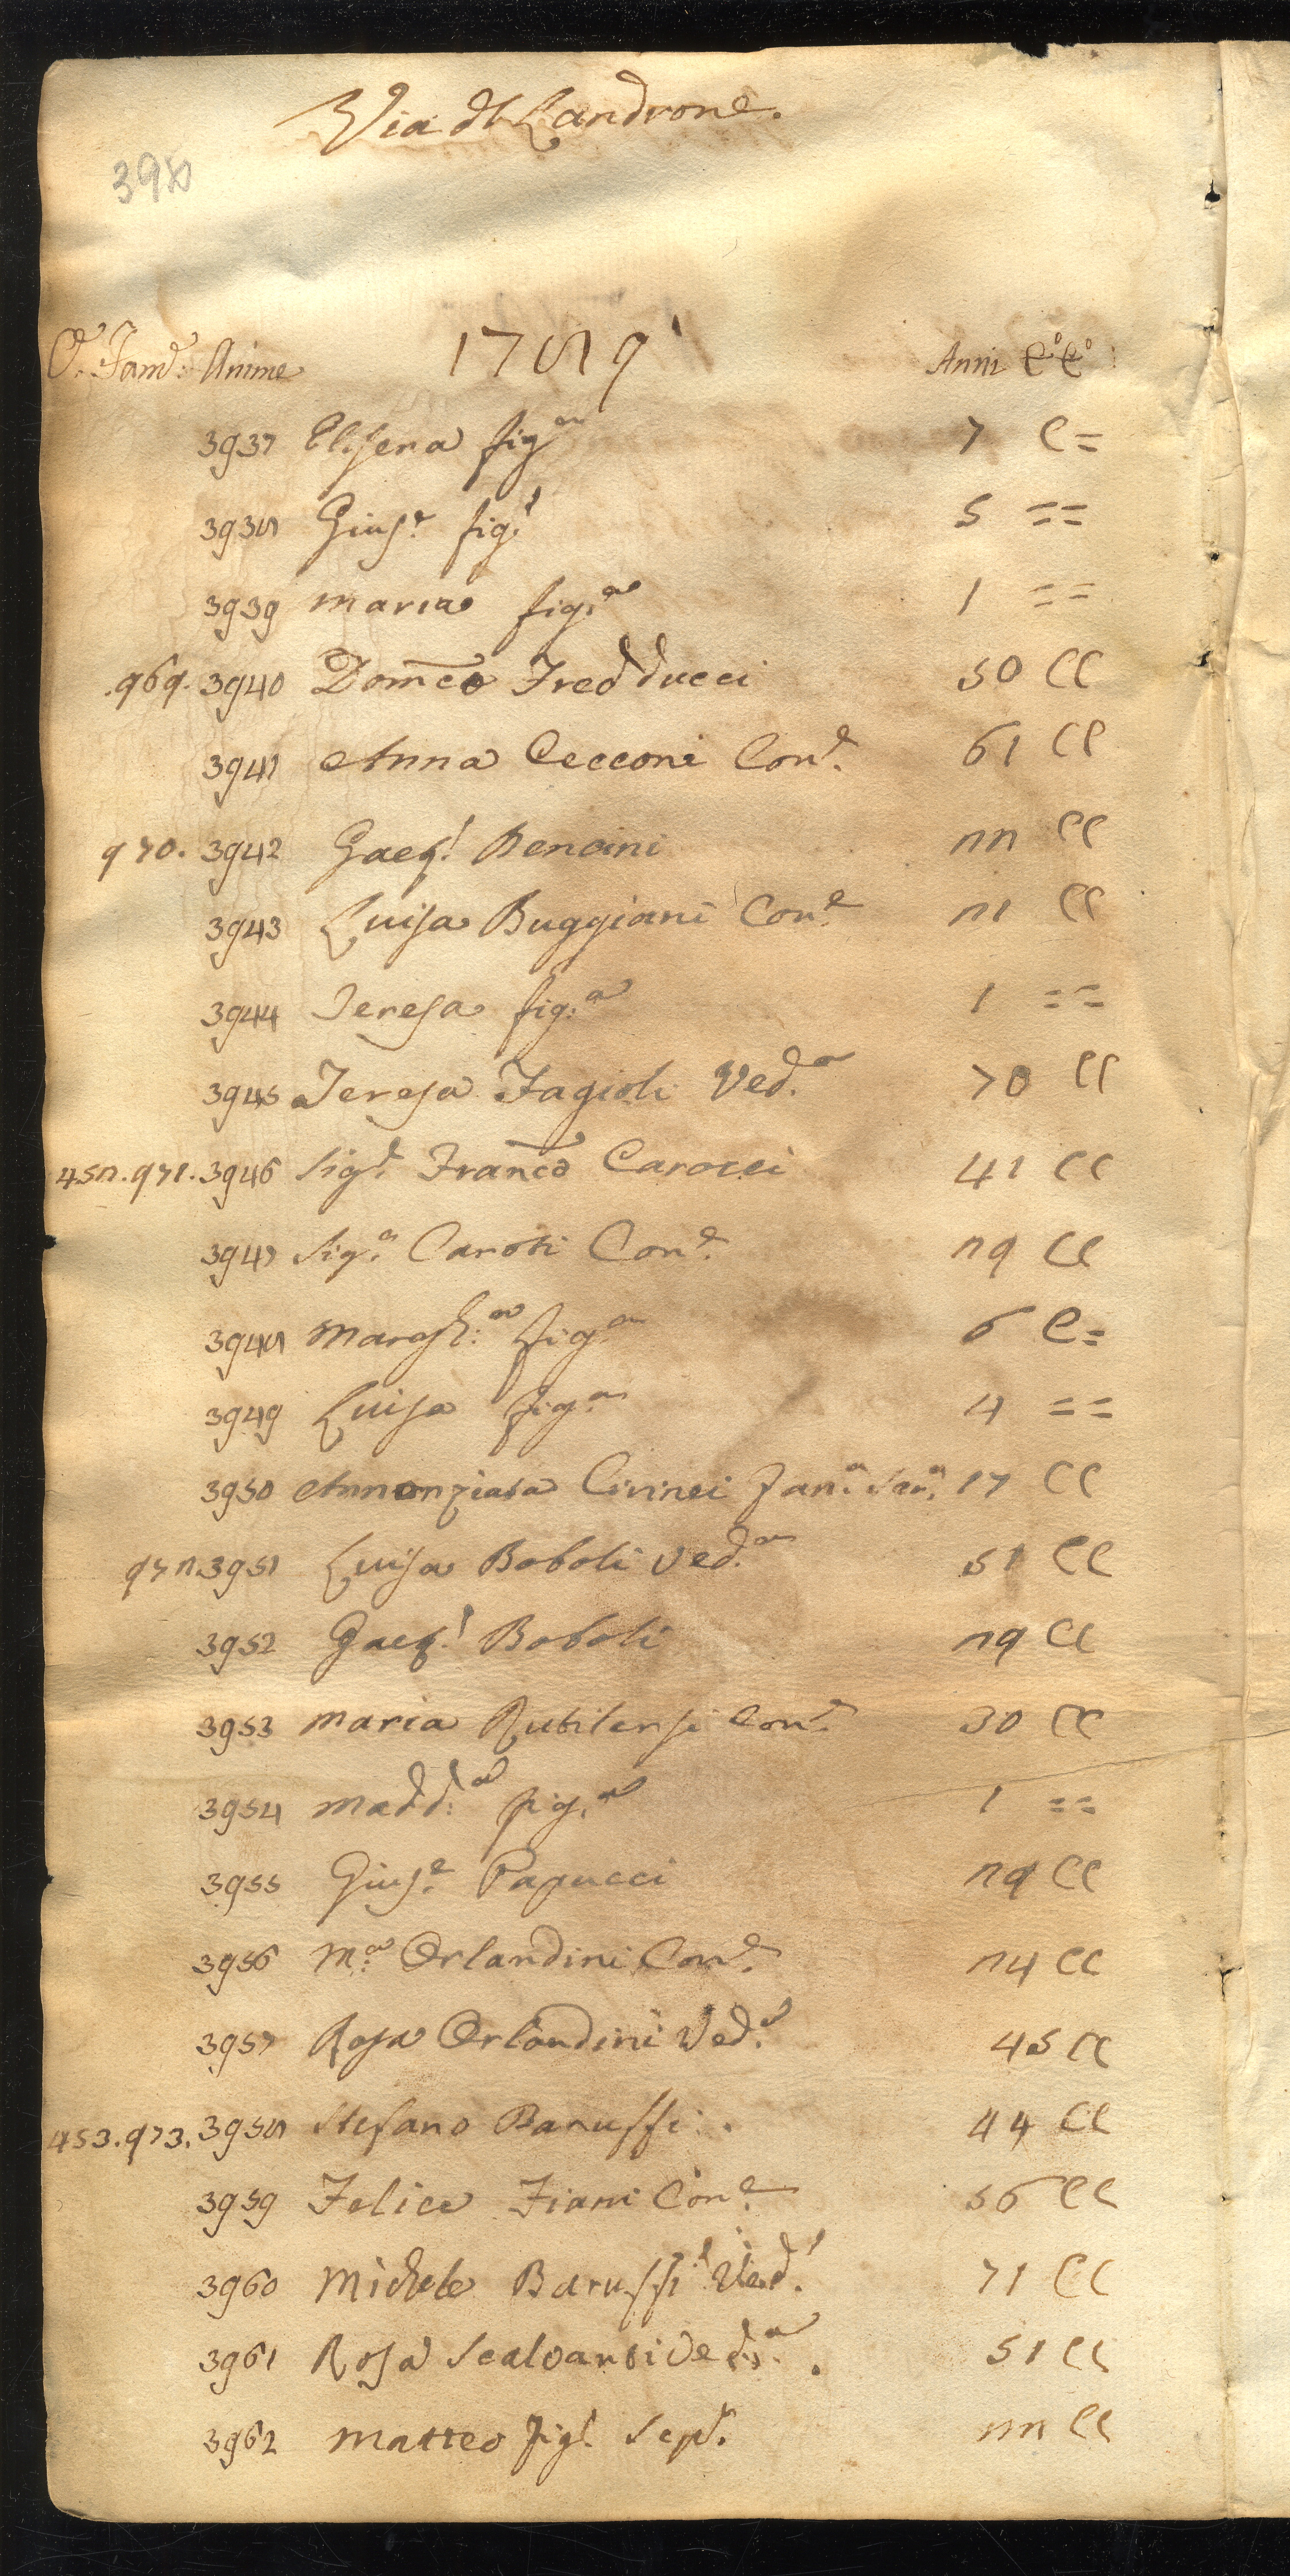 Via dl Landrone.
1789
Fam.e Anime Anni C.o C.o
3937 Elisena fig.a 7 C=
3938 Gius.e fig.l 5 ==
3939 Maria fig.a 1 ==
.969. 3940 Domco Fredducci 50 CC
3941 Anna Cecconi Con.e 61 CC
970. 3942 Gaet.! Bencini 22 CC
3943 Luisa Buggiani Con.e 21 CC
3944 Teresa fig.a 1 ==
3945 Teresa Fagioli Ved.a 70 CC
452. 971. 3946 Sig.e Franco Carocci 41 CC
3947 Sig.a Caroti Con.e 29 CC
3948 Margh:a fig.a 6 C=
3949 Luisa fig.a 4 ==
3950 Annonziata Civinei Fan.a Ser.a 17 CC
972. 3951 Luisa Boboli Ved.a 51 CC
3952 Gaet.! Boboli 29 CC
3953 Maria Rutilensi Con.e 30 CC
3954 Madd:a fig.a 1 ==
3955 Gius.e Papucci 29 CC
3956 M.a Orlandini Con.e 24 CC
3957 Rosa Orlandini Ved.a 45 CC
453. 973. 3958 Stefano Baruffi. 44 CC
3959 Felice Fiani Con.e 56 CC
3960 Michele Baruffi Ved.! 71 CC
3961 Rosa Scalvanti Ved.a. 51 CC
3962 Matteo figl. Sepd. 22 CC